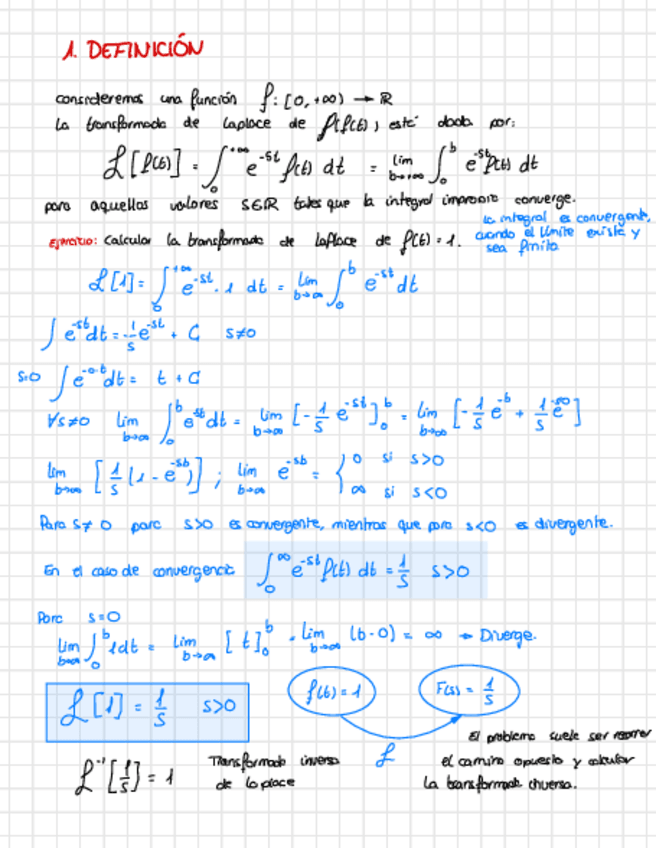 1. DEFINICIÓN
consideremos una función f: [0, +∞) → ℝ
La transformada de Laplace de f(f(t)), esté dada por:
ℒ[f(t)] = ∫₀^{+∞} e^{-st} f(t) dt = lim_{b→+∞} ∫₀^b e^{-st} f(t) dt
para aquellos valores S∈ℝ tales que la integral impropia converge.
la integral es convergente,
cuando el límite existe y
sea finito
Ejercicio: Calcular la transformada de Laplace de f(t) = 1.
ℒ[1] = ∫₀^{+∞} e^{-st} · 1 dt = lim_{b→∞} ∫₀^b e^{-st} dt
∫ e^{-st} dt = -1/s e^{-st} + C s≠0
s=0 ∫ e^{-0·t} dt = t + C
∀s≠0 lim_{b→∞} ∫₀^b e^{-st} dt = lim_{b→∞} [-1/s e^{-st}]₀^b = lim_{b→∞} [-1/s e^{-b} + 1/s e^{-s0}]
lim_{b→∞} [1/s (1 - e^{-sb})] ; lim_{b→∞} e^{-sb} = { 0 si s>0
∞ si s<0
Para s≠0 para s>0 es convergente, mientras que para s<0 es divergente.
En el caso de convergencia ∫₀^∞ e^{-st} f(t) dt = 1/s s>0
Para s=0
lim_{b→∞} ∫₀^b 1dt = lim_{b→∞} [t]₀^b = lim_{b→∞} (b-0) = ∞ → Diverge.
ℒ[1] = 1/s s>0
f(t) = 1
F(s) = 1/s
ℒ
ℒ⁻¹[1/s] = 1
Transformada inversa
de laplace
El problema suele ser recorrer
el camino opuesto y calcular
la transformada inversa.